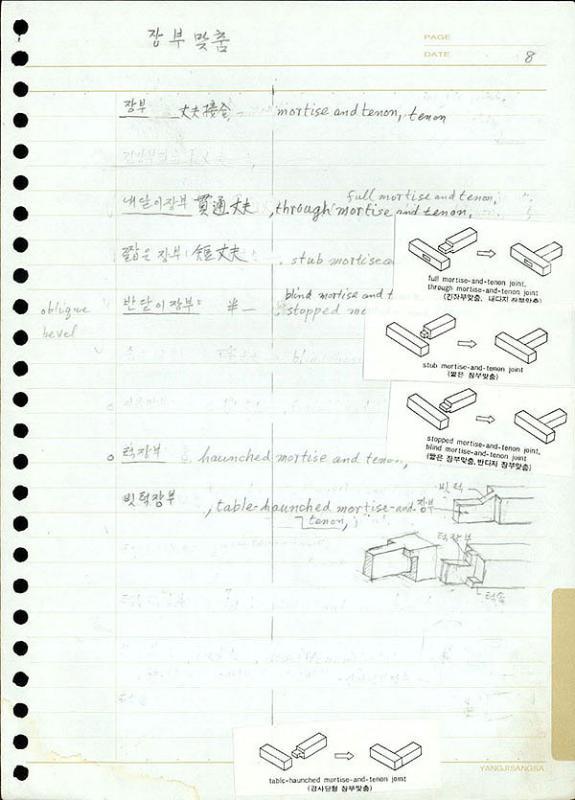 장부맞춤
PAGE
DATE 8
장부 丈夫接合 mortise and tenon, tenon
full mortise and tenon,
내달이장부 貫通丈夫, through mortise and tenon,
짧은 장부 短丈夫, stub mortise a
full mortise-and-tenon joint,
through mortise-and-tenon joint
(긴장부맞춤, 내다지 장부맞춤)
blind mortise and t
oblique 반달이장부 半 stopped mo
bevel
stub mortise-and-tenon joint
(짧은 장부맞춤)
stopped mortise-and-tenon joint,
blind mortise-and-tenon joint
(짧은 장부맞춤, 반다지 장부맞춤)
턱장부 haunched mortise and tenon,
빗턱
빗턱장부, table-haunched mortise-and-
tenon,
장부
턱장부
턱솔
table-haunched mortise-and-tenon joint
(경사단형 장부맞춤)
YANGJISANGSA